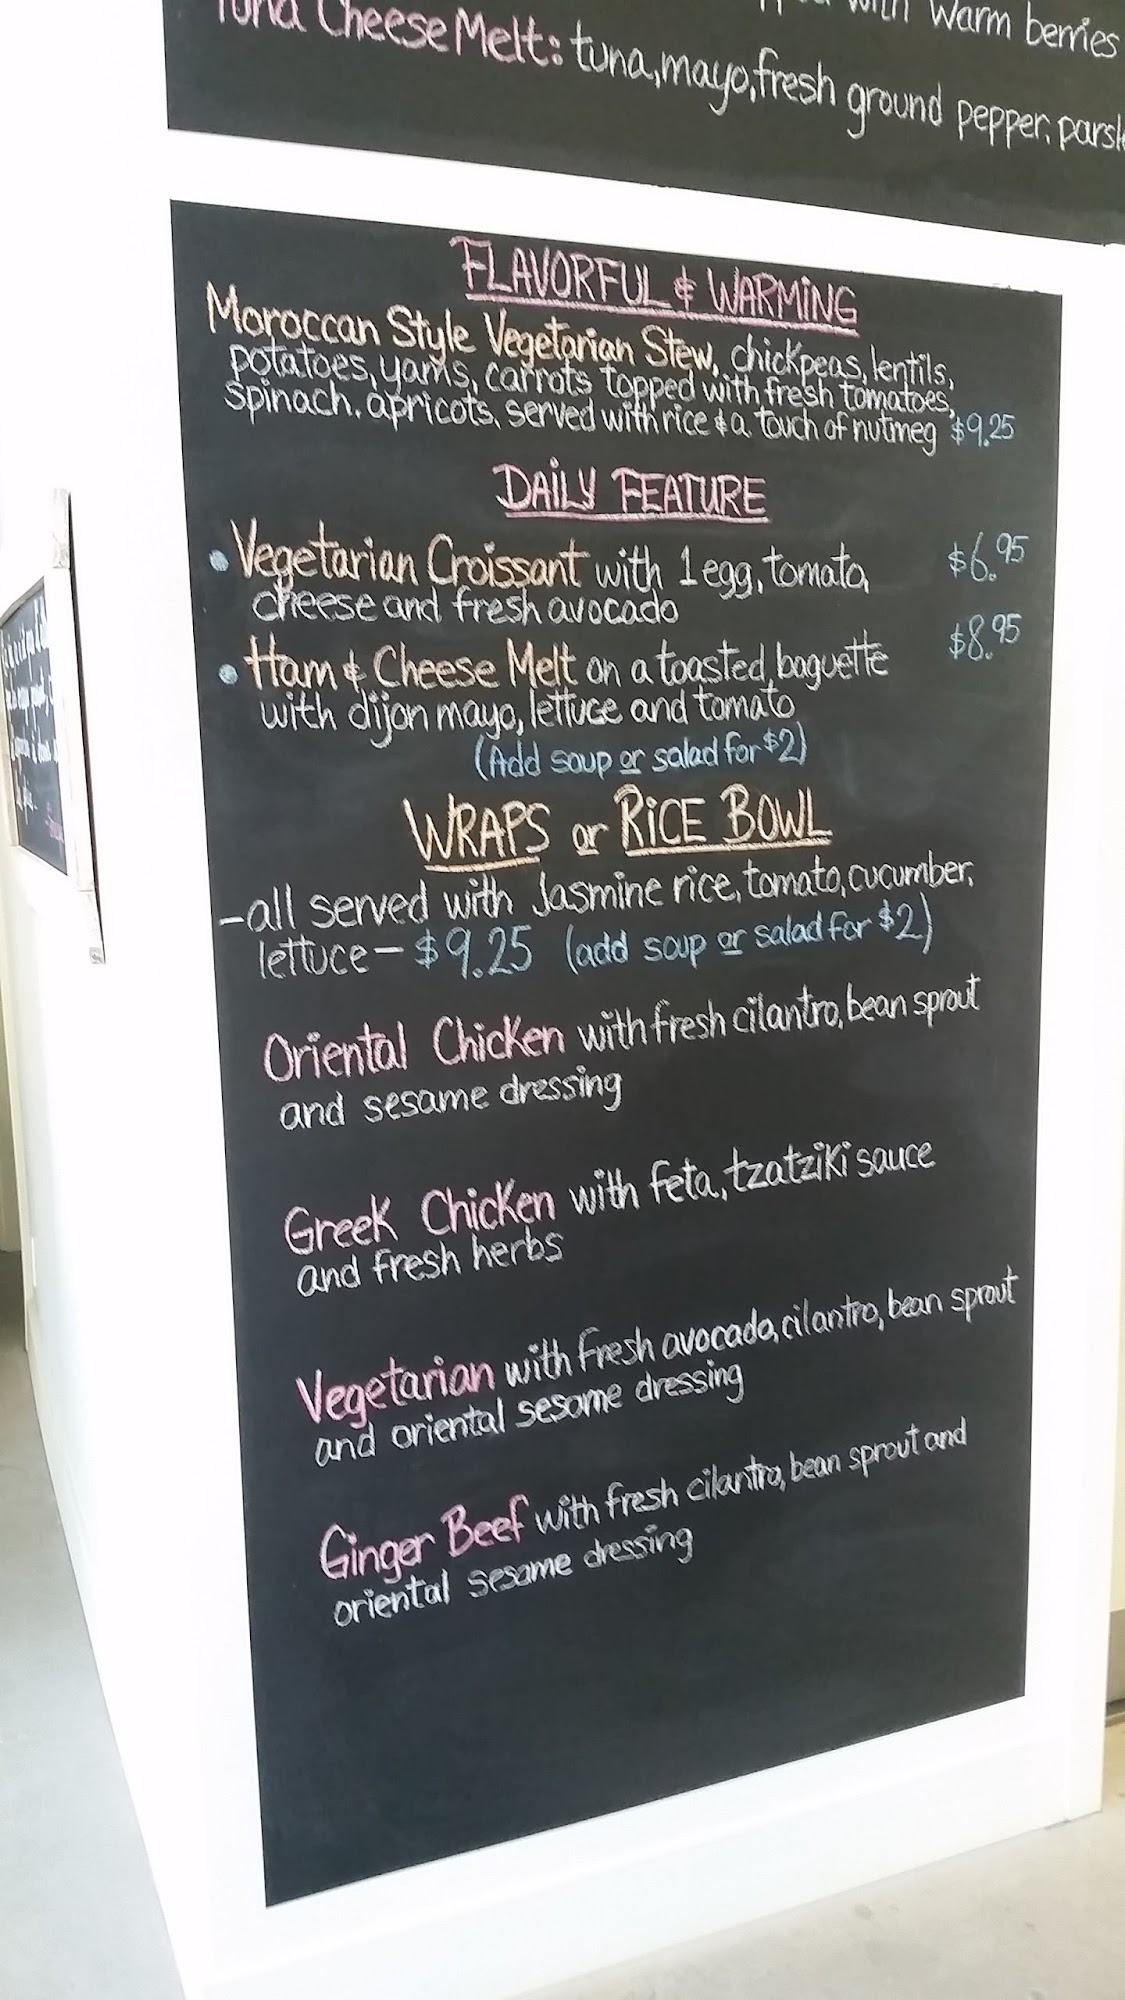 with warm berries
Tuna Cheese Melt: tuna, mayo, fresh ground pepper, parsl
FLAVORFUL & WARMING
Moroccan Style Vegetarian Stew, chickpeas, lentils,
potatoes, yams, carrots topped with fresh tomatoes,
spinach. apricots, served with rice & a touch of nutmeg $9.25
DAILY FEATURE
• Vegetarian Croissant with 1 egg, tomato, $6.95
cheese and fresh avocado
• Ham & Cheese Melt on a toasted baguette $8.95
with dijon mayo, lettuce and tomato
(Add soup or salad for $2)
WRAPS or RICE BOWL
-all served with Jasmine rice, tomato, cucumber,
lettuce - $9.25 (add soup or salad for $2)
Oriental Chicken with fresh cilantro, bean sprout
and sesame dressing
Greek Chicken with feta, tzatziki sauce
and fresh herbs
Vegetarian with fresh avocado, cilantro, bean sprout
and oriental sesame dressing
Ginger Beef with fresh cilantro, bean sprout and
oriental sesame dressing